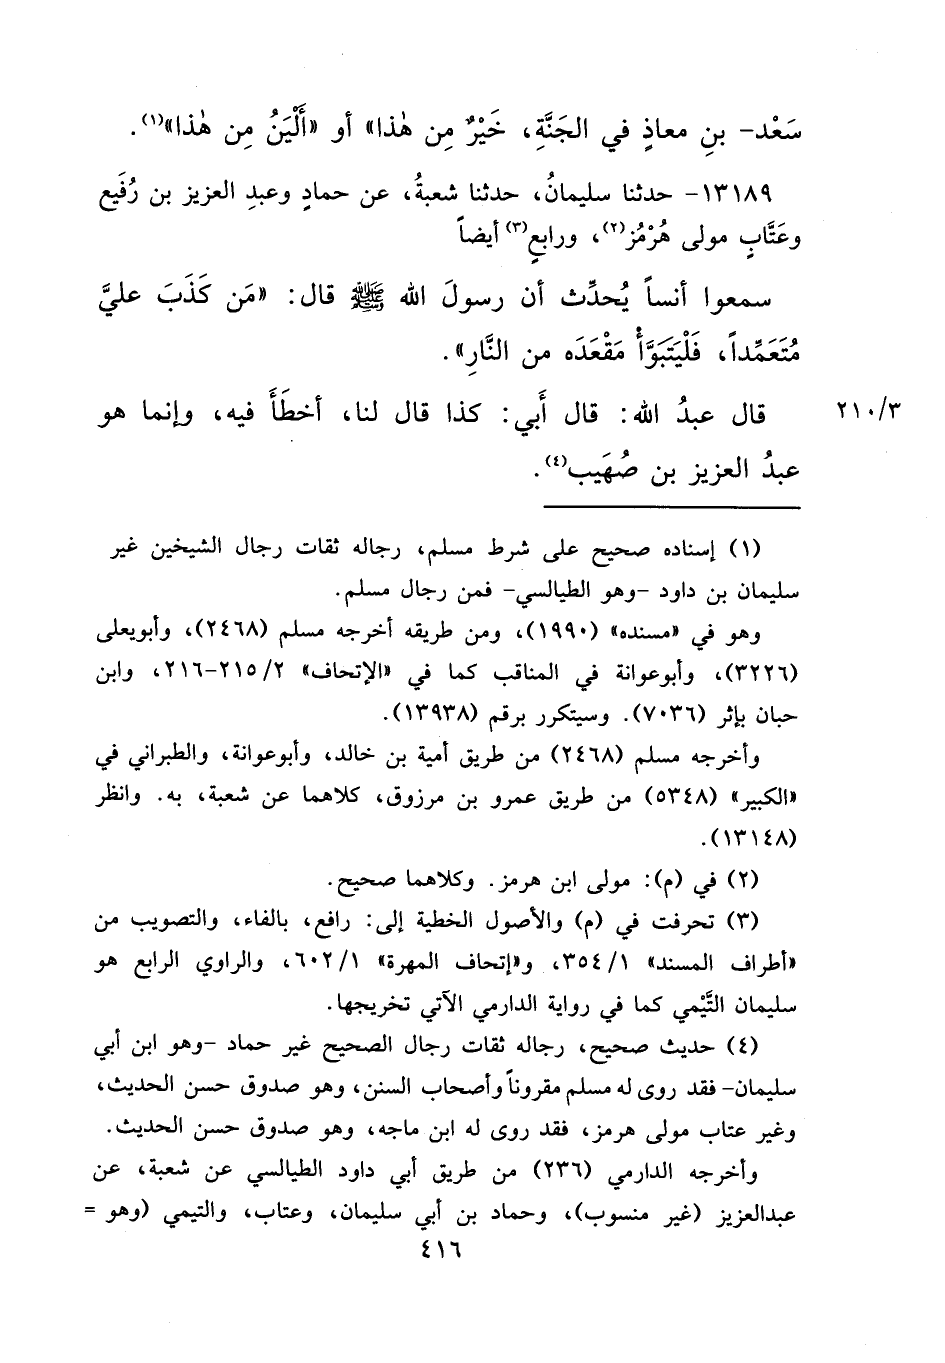 سَعْد- بنِ معاذٍ في الجَنَّةِ، خَيْرٌ مِن هٰذا» أو «أَلْيَنُ مِن هٰذا»(١).
١٣١٨٩- حدثنا سليمانُ، حدثنا شعبةُ، عن حمادٍ وعبدِ العزيز بن رُفَيع
وعَتَّابٍ مولى هُرْمُز(٢)، ورابعٍ(٣) أيضاً
سمعوا أنساً يُحدِّث أن رسولَ الله ﷺ قال: «مَن كَذَبَ عليَّ
مُتَعَمِّداً، فَلْيَتَبَوَّأْ مَقْعَدَه من النَّارِ».
٢١٠/٣ قال عبدُ الله: قال أَبي: كذا قال لنا، أخطَأَ فيه، وإنما هو
عبدُ العزيز بن صُهَيب(٤).
(١) إسناده صحيح على شرط مسلم، رجاله ثقات رجال الشيخين غير
سليمان بن داود -وهو الطيالسي- فمن رجال مسلم.
وهو في «مسنده» (١٩٩٠)، ومن طريقه أخرجه مسلم (٢٤٦٨)، وأبويعلى
(٣٢٢٦)، وأبوعوانة في المناقب كما في «الإتحاف» ٢١٥/٢-٢١٦، وابن
حبان بإثر (٧٠٣٦). وسيتكرر برقم (١٣٩٣٨).
وأخرجه مسلم (٢٤٦٨) من طريق أمية بن خالد، وأبوعوانة، والطبراني في
«الكبير» (٥٣٤٨) من طريق عمرو بن مرزوق، كلاهما عن شعبة، به. وانظر
(١٣١٤٨).
(٢) في (م): مولى ابن هرمز. وكلاهما صحيح.
(٣) تحرفت في (م) والأصول الخطية إلى: رافع، بالفاء، والتصويب من
«أطراف المسند» ٣٥٤/١، و«إتحاف المهرة» ٦٠٢/١، والراوي الرابع هو
سليمان التَّيْمي كما في رواية الدارمي الآتي تخريجها.
(٤) حديث صحيح، رجاله ثقات رجال الصحيح غير حماد -وهو ابن أبي
سليمان- فقد روى له مسلم مقروناً وأصحاب السنن، وهو صدوق حسن الحديث،
وغير عتاب مولى هرمز، فقد روى له ابن ماجه، وهو صدوق حسن الحديث.
وأخرجه الدارمي (٢٣٦) من طريق أبي داود الطيالسي عن شعبة، عن
عبدالعزيز (غير منسوب)، وحماد بن أبي سليمان، وعتاب، والتيمي (وهو =
٤١٦